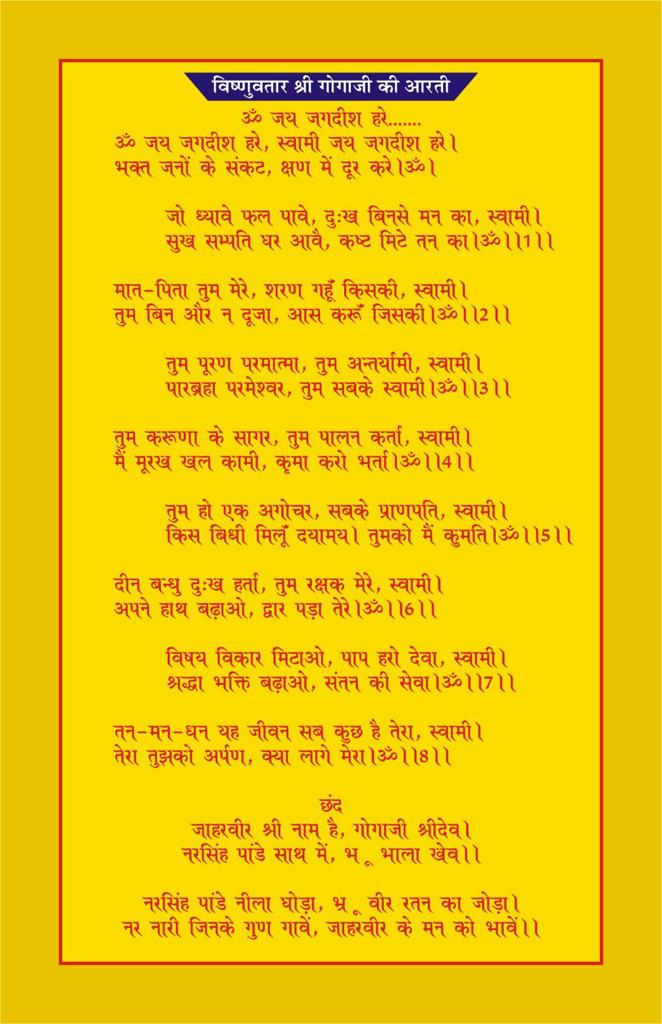 विष्णुवतार श्री गोगाजी की आरती
ॐ जय जगदीश हरे.......
ॐ जय जगदीश हरे, स्वामी जय जगदीश हरे।
भक्त जनों के संकट, क्षण में दूर करे।ॐ।
जो ध्यावे फल पावे, दुःख बिनसे मन का, स्वामी।
सुख सम्पति घर आवै, कष्ट मिटे तन का।ॐ।।1।।
मात-पिता तुम मेरे, शरण गहूँ किसकी, स्वामी।
तुम बिन और न दूजा, आस करूँ जिसकी।ॐ।।2।।
तुम पूरण परमात्मा, तुम अन्तर्यामी, स्वामी।
पारब्रहा परमेश्वर, तुम सबके स्वामी।ॐ।।3।।
तुम करूणा के सागर, तुम पालन कर्ता, स्वामी।
मैं मूरख खल कामी, कृमा करो भर्ता।ॐ।।4।।
तुम हो एक अगोचर, सबके प्राणपति, स्वामी।
किस बिधी मिलूँ दयामय। तुमको मैं कुमति।ॐ।।5।।
दीन बन्धु दुःख हर्ता, तुम रक्षक मेरे, स्वामी।
अपने हाथ बढ़ाओ, द्वार पड़ा तेरे।ॐ।।6।।
विषय विकार मिटाओ, पाप हरो देवा, स्वामी।
श्रद्धा भक्ति बढ़ाओ, संतन की सेवा।ॐ।।7।।
तन-मन-धन यह जीवन सब कुछ है तेरा, स्वामी।
तेरा तुझको अर्पण, क्या लागे मेरा।ॐ।।8।।
छंद
जाहरवीर श्री नाम है, गोगाजी श्रीदेव।
नरसिंह पांडे साथ में, भ ू भाला खेव।।
नरसिंह पांडे नीला घोड़ा, भ्र ू वीर रतन का जोड़ा।
नर नारी जिनके गुण गावें, जाहरवीर के मन को भावें।।